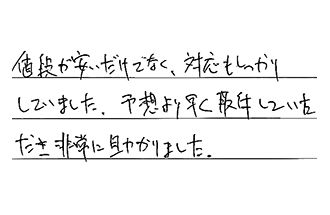 値段が安いだけでなく、対応もしっかり
していました。予想より早く取付していた
だき非常に助かりました。